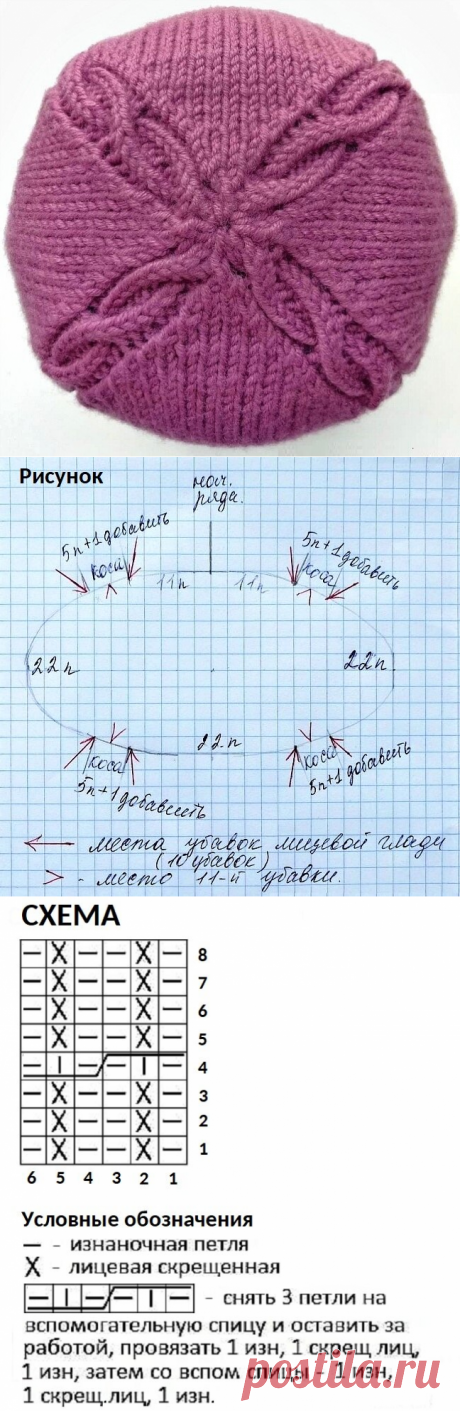 Рисунок
нач.
ряда.
5п+1добавить
коса
11п
11п
5п+1добавить
коса
22п
22п
22п
коса
5п+1добавить
коса
5п+1добавить
← - места убавок лицевой глади
(10 убавок)
> - место 11-й убавки.
СХЕМА
— X — — X — 8
— X — — X — 7
— X — — X — 6
— X — — X — 5
— I — — I — 4
— X — — X — 3
— X — — X — 2
— X — — X — 1
6 5 4 3 2 1
Условные обозначения
— - изнаночная петля
X - лицевая скрещенная
- снять 3 петли на
вспомогательную спицу и оставить за
работой, провязать 1 изн, 1 скрещ лиц,
1 изн, затем со вспом спицы - 1 изн,
1 скрещ.лиц, 1 изн.
postila.ru